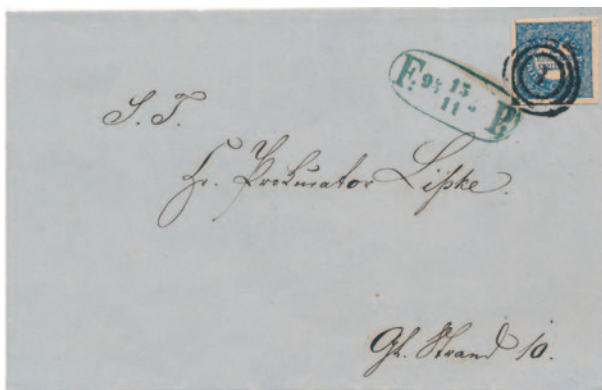 F. 9½ 15 P.
11
S. T.
Hr. Prokurator Lißke.
Gl. Strand 10.